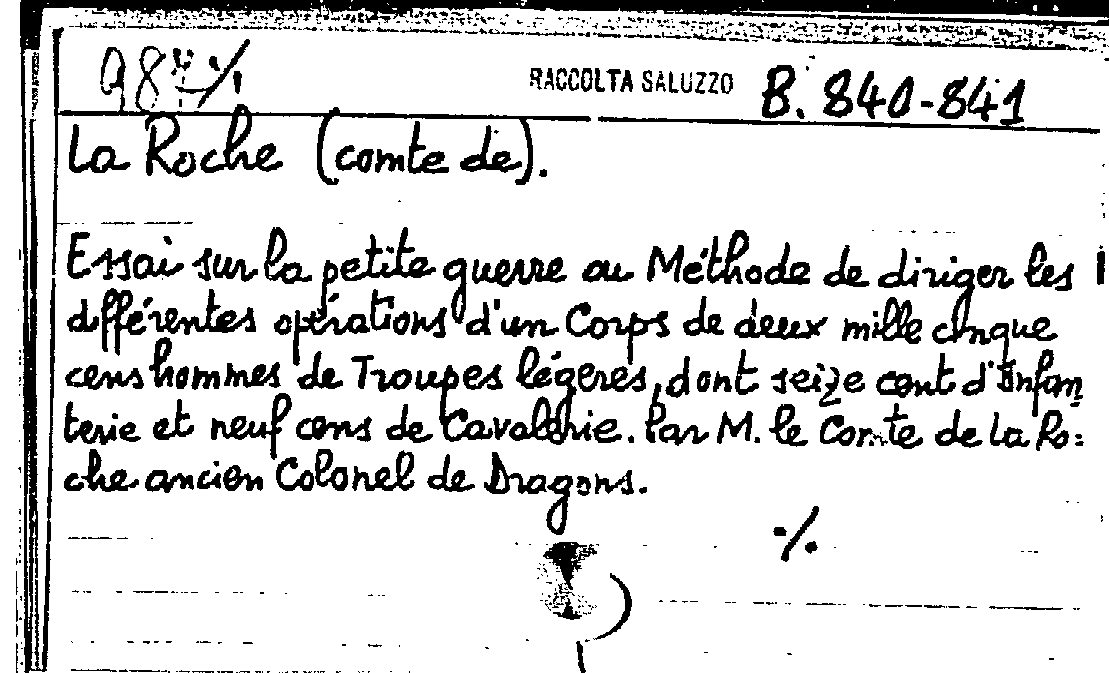 987 ./.
RACCOLTA SALUZZO B. 840-841
La Roche (comte de).
Essai sur la petite guerre ou Méthode de diriger les
différentes opérations d'un Corps de deux mille cinque
cens hommes de Troupes légeres, dont seize cent d'Infan
terie et neuf cens de Cavallerie. Par M. le Comte de La Ro:
che ancien Colonel de Dragons.
./.